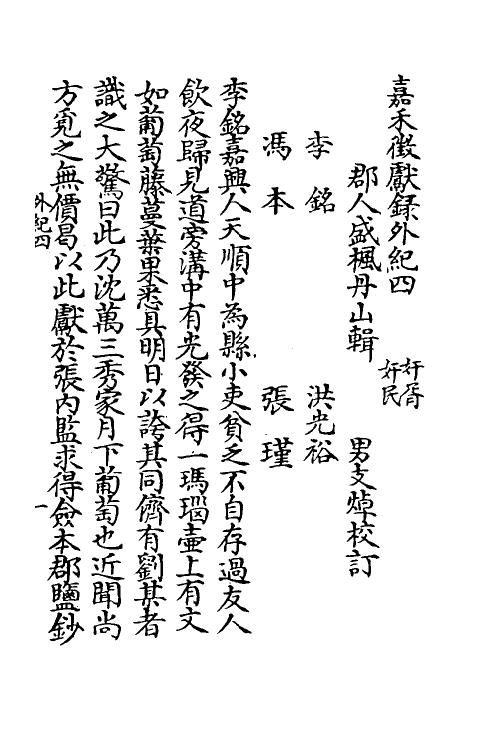 嘉禾徵獻錄外紀四
奸胥
奸民
郡人盛楓丹山輯
男支焯校訂
李銘
洪光裕
馮本
張瑾
李銘嘉興人天順中為縣小吏貧乏不自存過友人
飲夜歸見道旁溝中有光發之得一瑪瑙壺上有文
如葡萄藤蔓葉果悉具明日以誇其同儕有劉某者
識之大驚曰此乃沈萬三秀家月下葡萄也近聞尚
方覓之無價曷以此獻於張內監求得僉本郡鹽鈔
外紀四
一